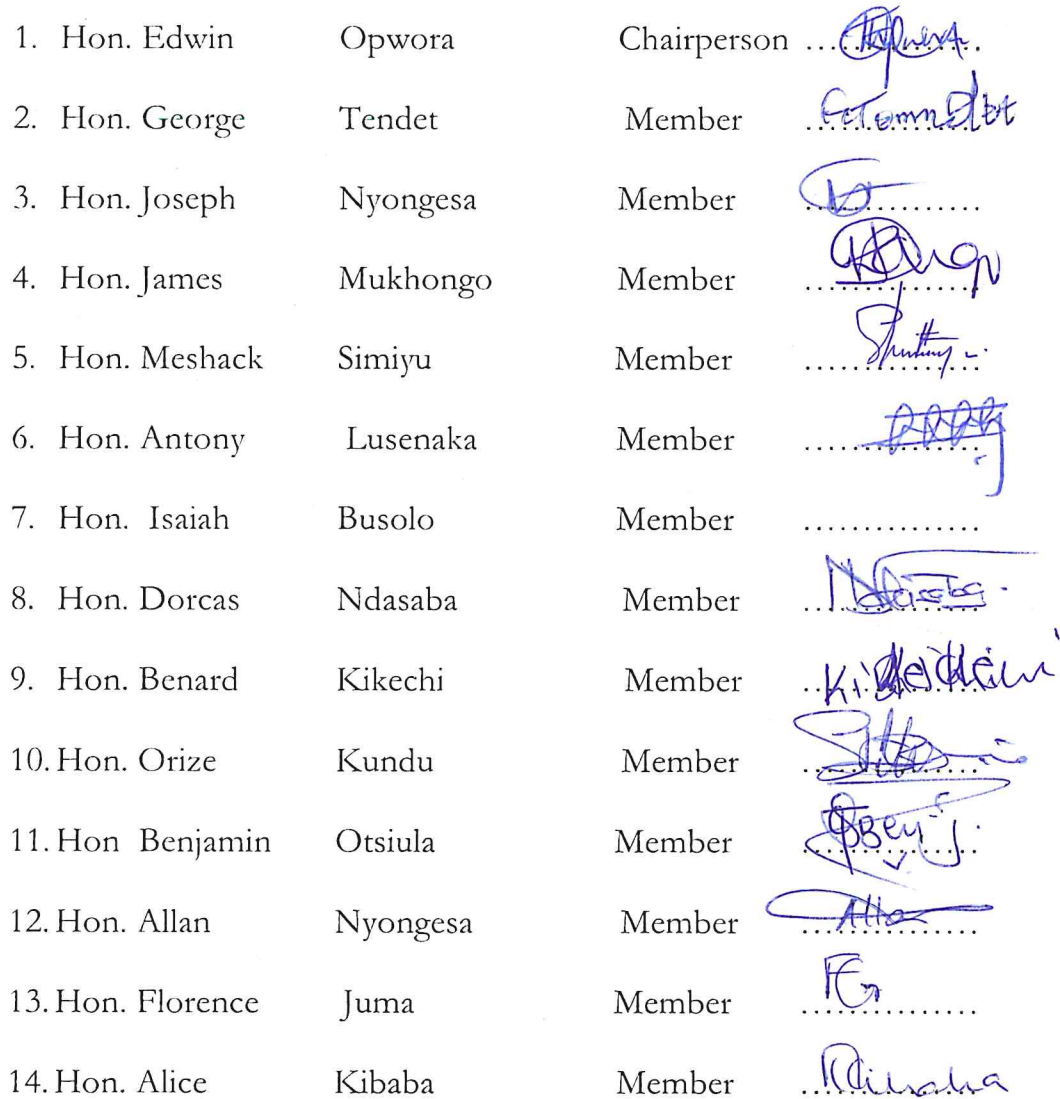 1. Hon. Edwin Opwora Chairperson ..............
2. Hon. George Tendet Member ..............
3. Hon. Joseph Nyongesa Member ..............
4. Hon. James Mukhongo Member ..............
5. Hon. Meshack Simiyu Member ..............
6. Hon. Antony Lusenaka Member ..............
7. Hon. Isaiah Busolo Member ..............
8. Hon. Dorcas Ndasaba Member ..............
9. Hon. Benard Kikechi Member ..............
10. Hon. Orize Kundu Member ..............
11. Hon Benjamin Otsiula Member ..............
12. Hon. Allan Nyongesa Member ..............
13. Hon. Florence Juma Member ..............
14. Hon. Alice Kibaba Member ..............